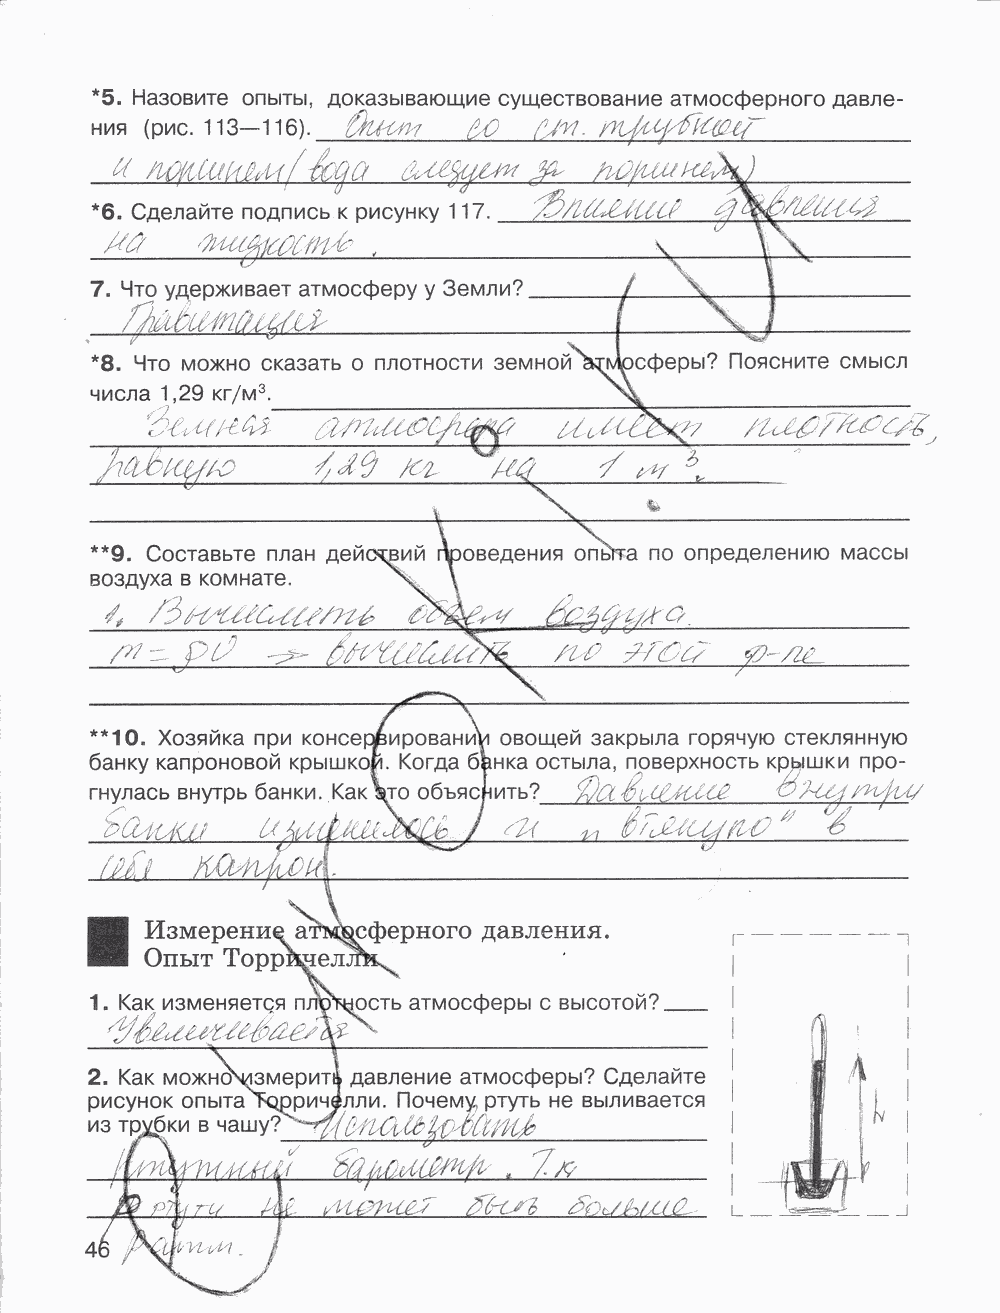 *5. Назовите опыты, доказывающие существование атмосферного давле-
ния (рис. 113—116). Опыт со ст. трубкой
и поршнем (вода следует за поршнем)
*6. Сделайте подпись к рисунку 117. Влияние давления
на жидкость.
7. Что удерживает атмосферу у Земли?
Гравитация
*8. Что можно сказать о плотности земной атмосферы? Поясните смысл
числа 1,29 кг/м³.
Земная атмосфера имеет плотность,
равную 1,29 кг на 1 м³.
**9. Составьте план действий проведения опыта по определению массы
воздуха в комнате.
1. Вычислить объем воздуха.
m = ρV → вычислить по этой ф-ле
**10. Хозяйка при консервировании овощей закрыла горячую стеклянную
банку капроновой крышкой. Когда банка остыла, поверхность крышки про-
гнулась внутрь банки. Как это объяснить? Давление внутри
банки изменилось и "втянуло" в
себя капрон.
Измерение атмосферного давления.
Опыт Торричелли
1. Как изменяется плотность атмосферы с высотой?
Увеличивается
2. Как можно измерить давление атмосферы? Сделайте
рисунок опыта Торричелли. Почему ртуть не выливается
из трубки в чашу? Использовать
ртутный барометр. Т.к
р ртути не может быть больше
р атм.
h
46